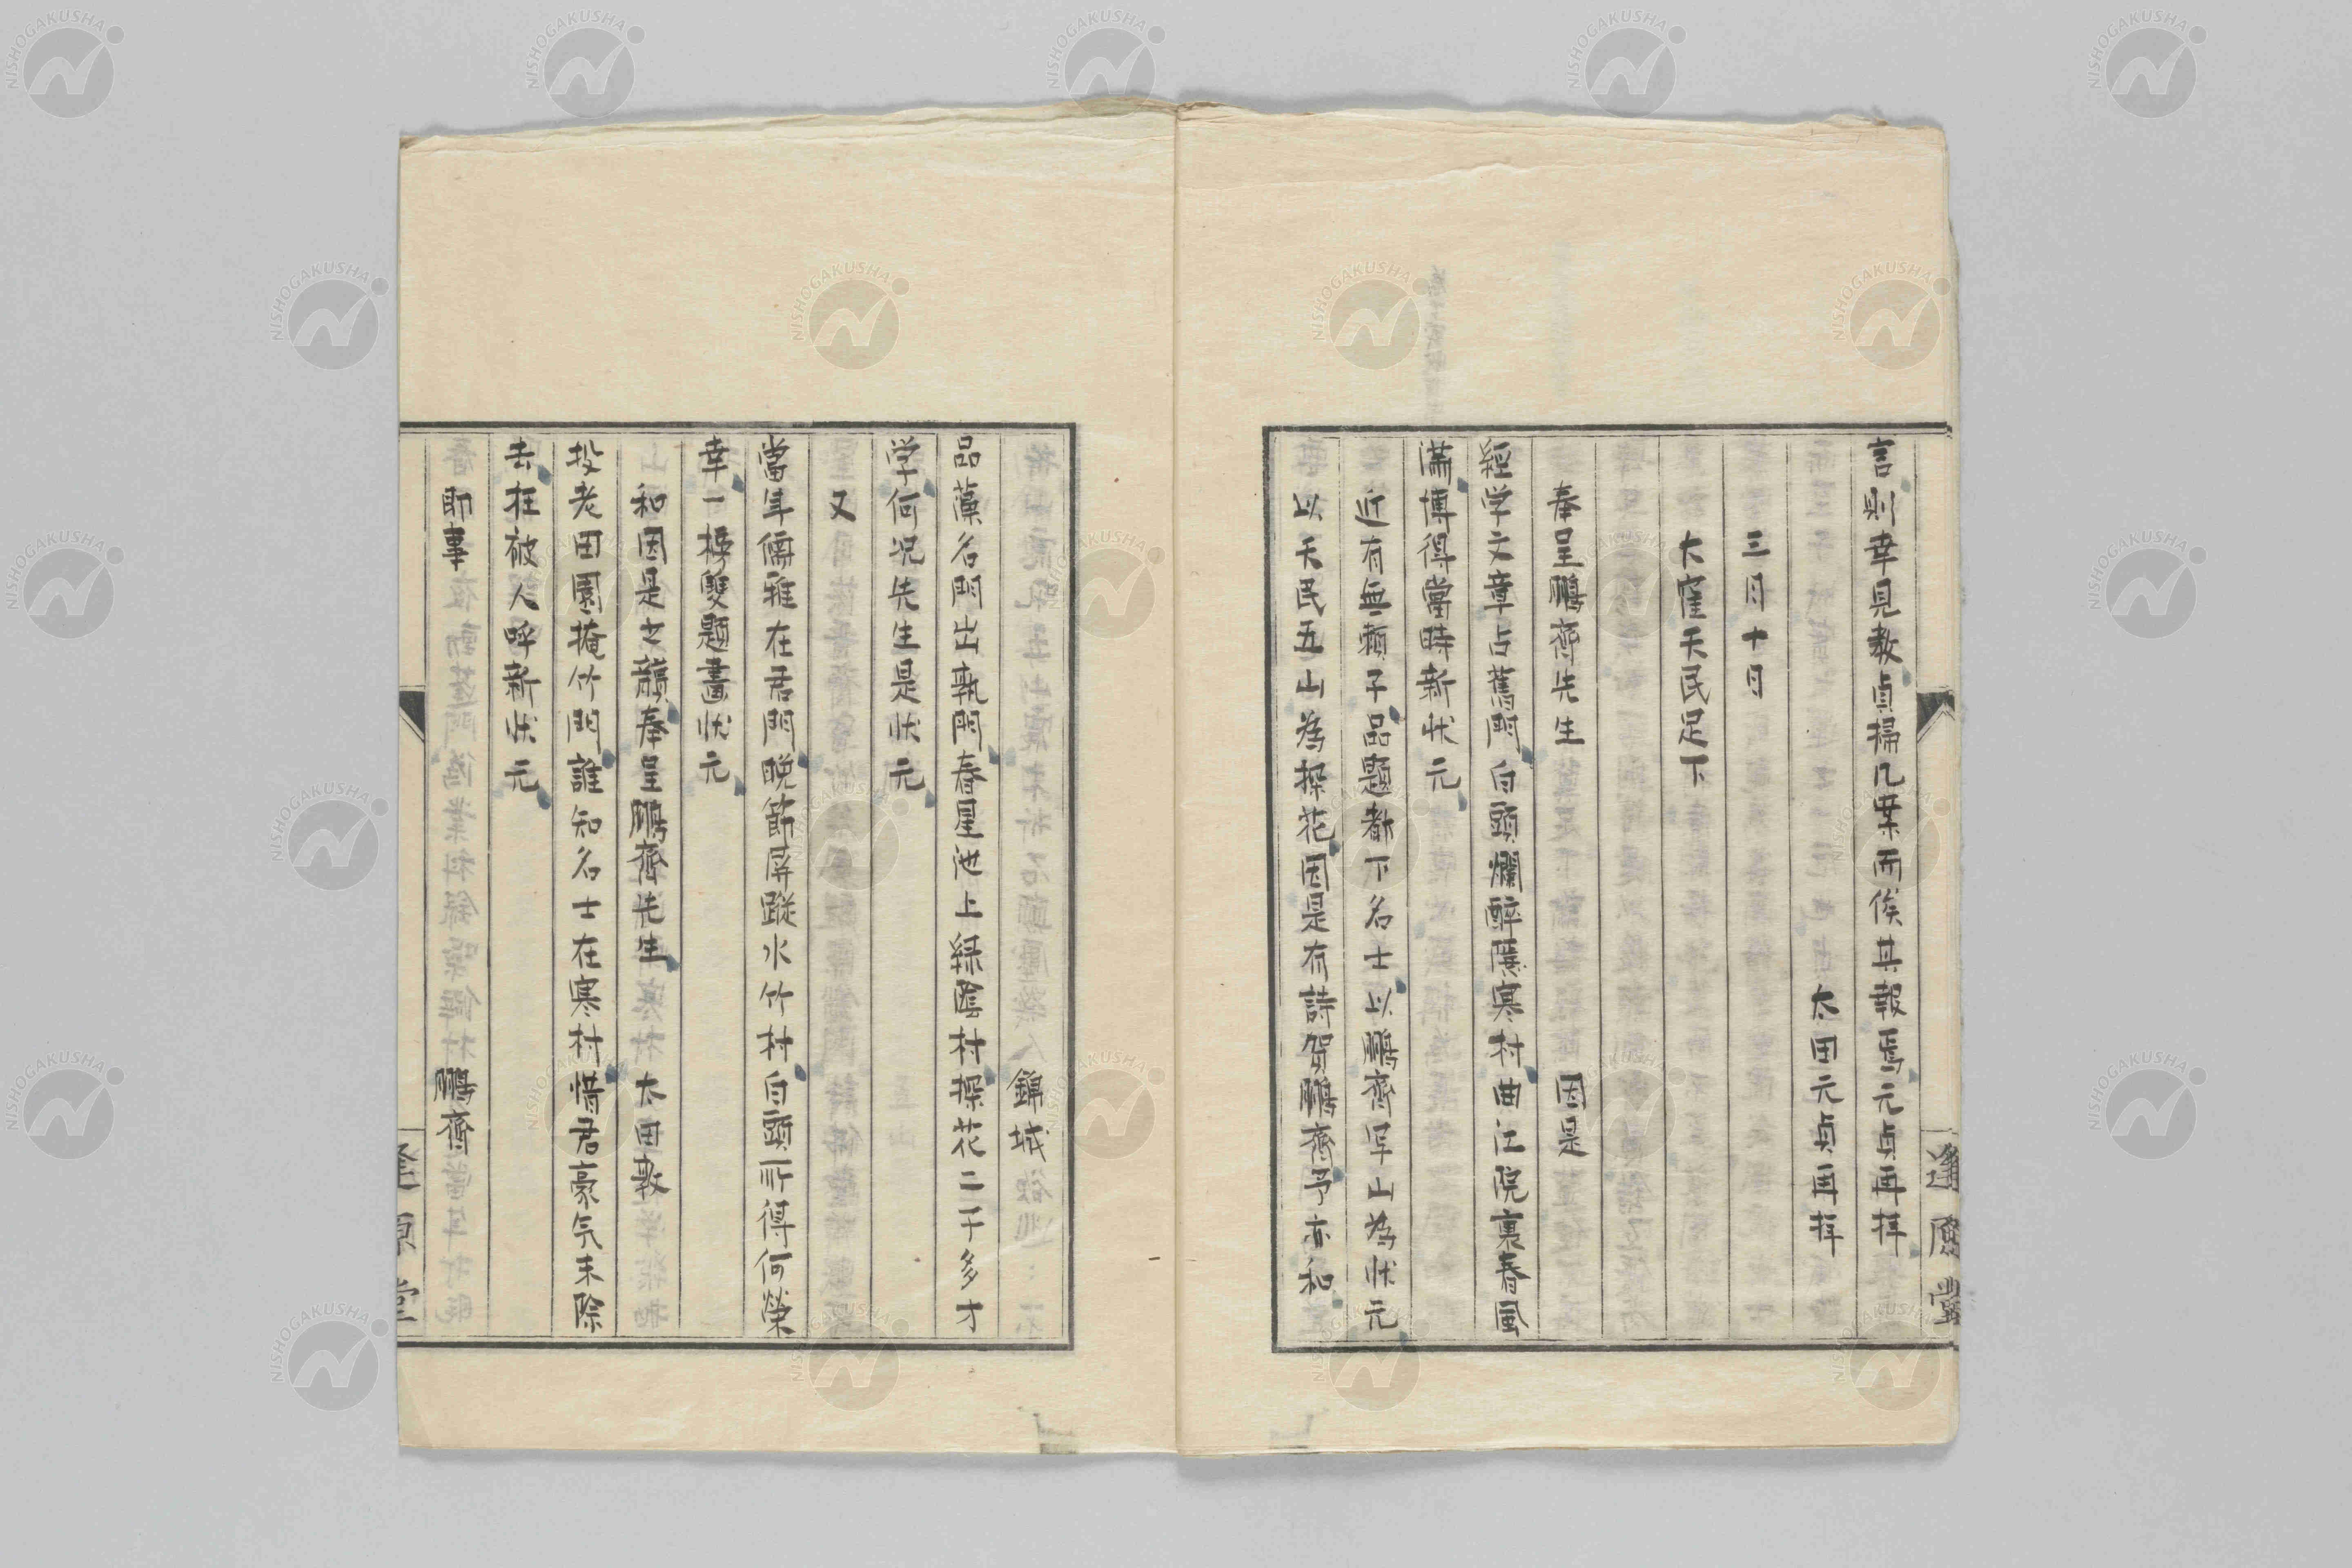 言則幸見教貞掃几案而俟其報焉元貞再拜
太田元貞再拜
三月十日
大窪天民足下
奉呈鵬齊先生 因是
經学文章占舊門白頭爛醉隱寒村曲江院裏春風
滿博得當時新狀元
近有無賴子品題都下名士以鵬齊年山為狀元
以天民五山為探花因是有詩賀鵬齊予亦和
逢原堂
錦城
品藻名門出孰門春星池上緑陰村探花二子多才
学何况先生是狀元
又
當年儒雅在君門晩節屏蹤水竹村白頭所得何榮
幸一榜雙題畫狀元
和因是之韻奉呈鵬齊先生 太田敦
投老田園掩竹門誰知名士在寒村惜君豪气未除
去枉被人呼新狀元
即事 鵬齊
逢原堂
NISHOGAKUSHA